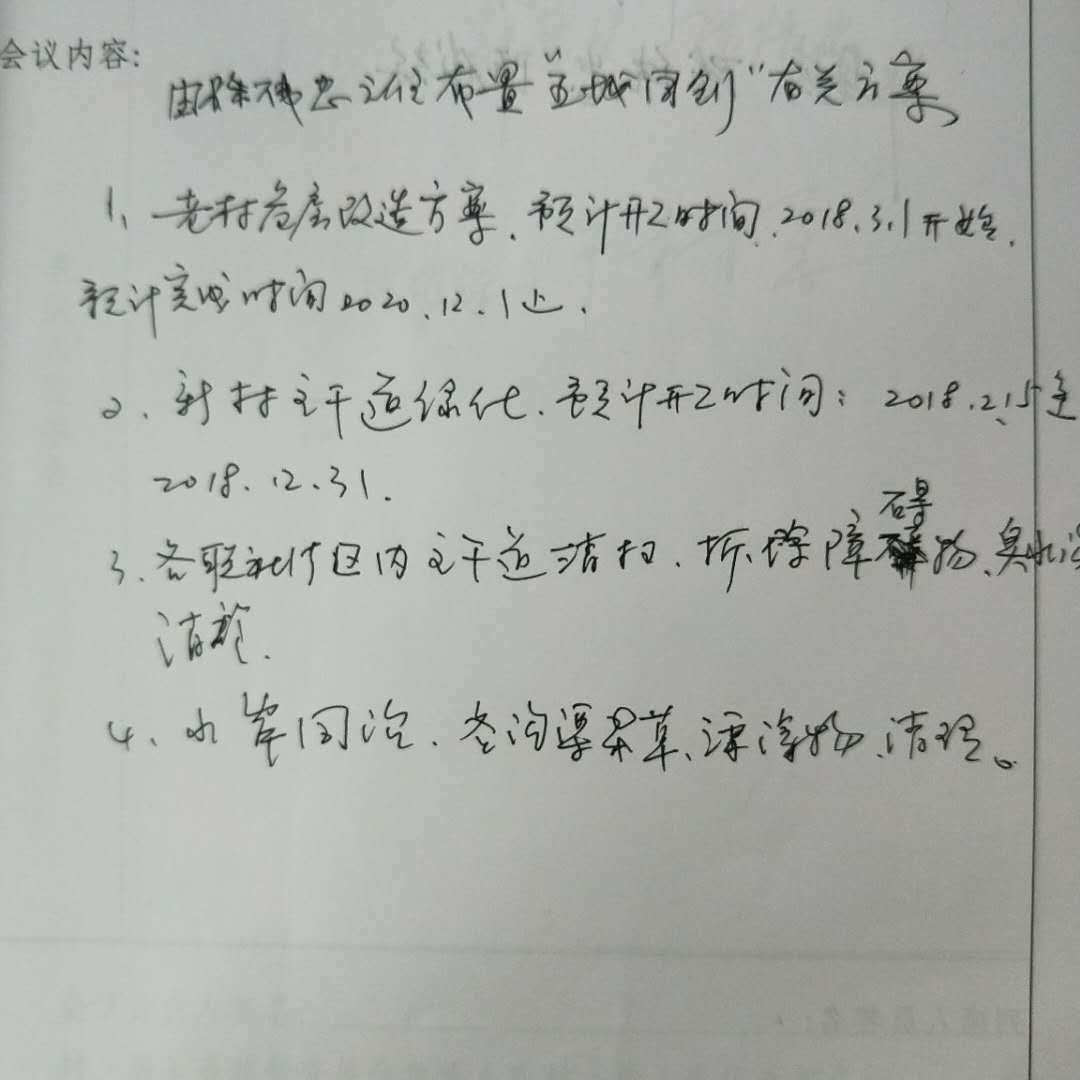 会议内容:
由 主任布置"五城同创"有关方案
1、老村危房改造方案.预计开工时间.2018.3.1开始.
预计完成时间2020.12.1止.
2、新村主干道绿化.预计开工时间:2018.2.15至
2018.12.31.
3.各联社片区内主干道清扫.拆除障碍物、臭水沟
清.
4、水岸同治.各沟渠杂草、漂浮物、清理。